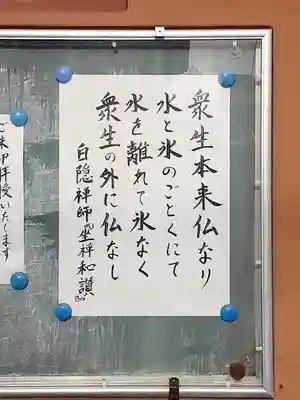 衆生本来仏なり
水と氷のごとくにて
水を離れて氷なく
衆生の外に仏なし
白隠禅師『坐禅和讃』
ご朱印拝受いたします